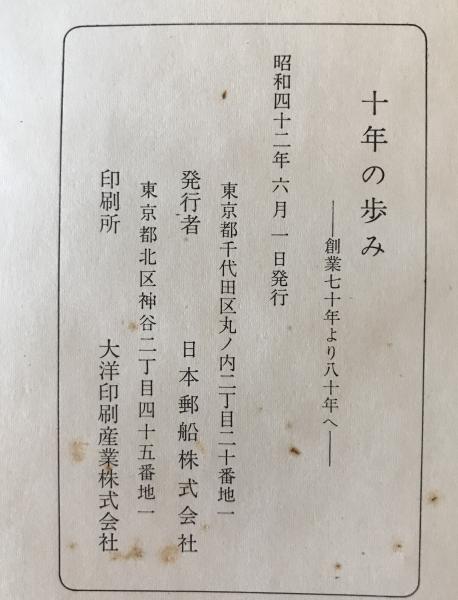 十年の歩み
――創業七十年より八十年へ――
昭和四十二年六月一日発行
東京都千代田区丸ノ内二丁目二十番地一
発行者 日本郵船株式会社
東京都北区神谷二丁目四十五番地一
印刷所 大洋印刷産業株式会社